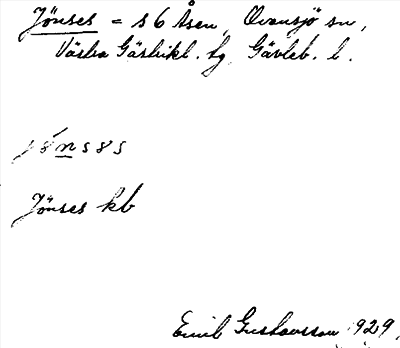 Jönses = s 6 Åsen, Ovansjö sn,
Västra Gästrikl. tg, Gävleb. l.
jö́ns8s
Jönses kb
Emil Gustavsson 1929.